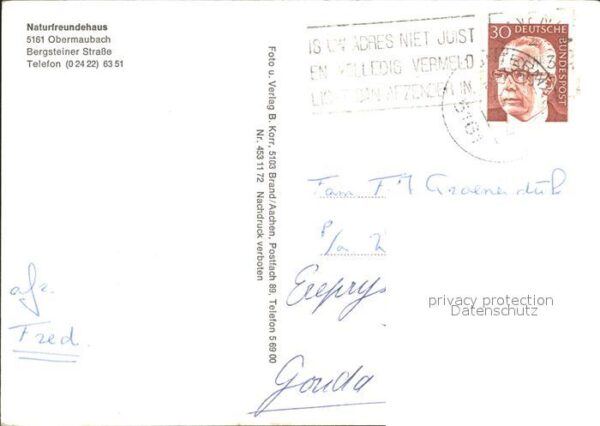 Naturfreundehaus
5161 Obermaubach
Bergsteiner Straße
Telefon (0 24 22) 63 51
IS UW ADRES NIET JUIST
EN VOLLEDIG VERMELD
LIGT DAN AFZENDER IN
30 DEUTSCHE
BUNDESPOST
5161
Foto u. Verlag B. Korr, 5103 Brand/Aachen, Postfach 89, Telefon 5 69 00
Nr. 453 11 72 Nachdruck verboten
Fam
Gouda
afz.
Fred.
privacy protection
Datenschutz